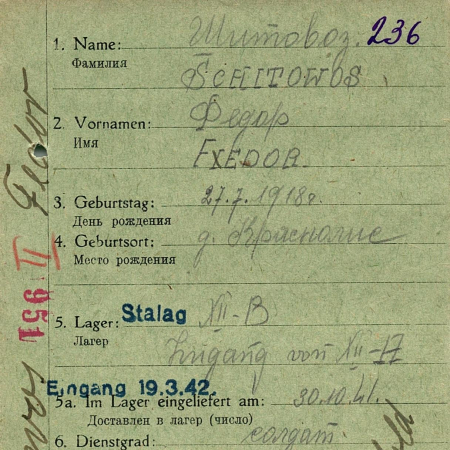 1. Name: Шитовоз. 236
Фамилия
SCHITOWOS
2. Vornamen: Федор
Имя
FXEDOR.
3. Geburtstag: 27.7.1918г
День рождения
4. Geburtsort: д.
Место рождения
5. Lager: Stalag XII-B
Лагерь
Eingang von XII-A
Eingang 19.3.42.
5a. Im Lager eingeliefert am: 30.10.41.
Доставлен в лагерь (число)
6. Dienstgrad:
Fedor
II
951